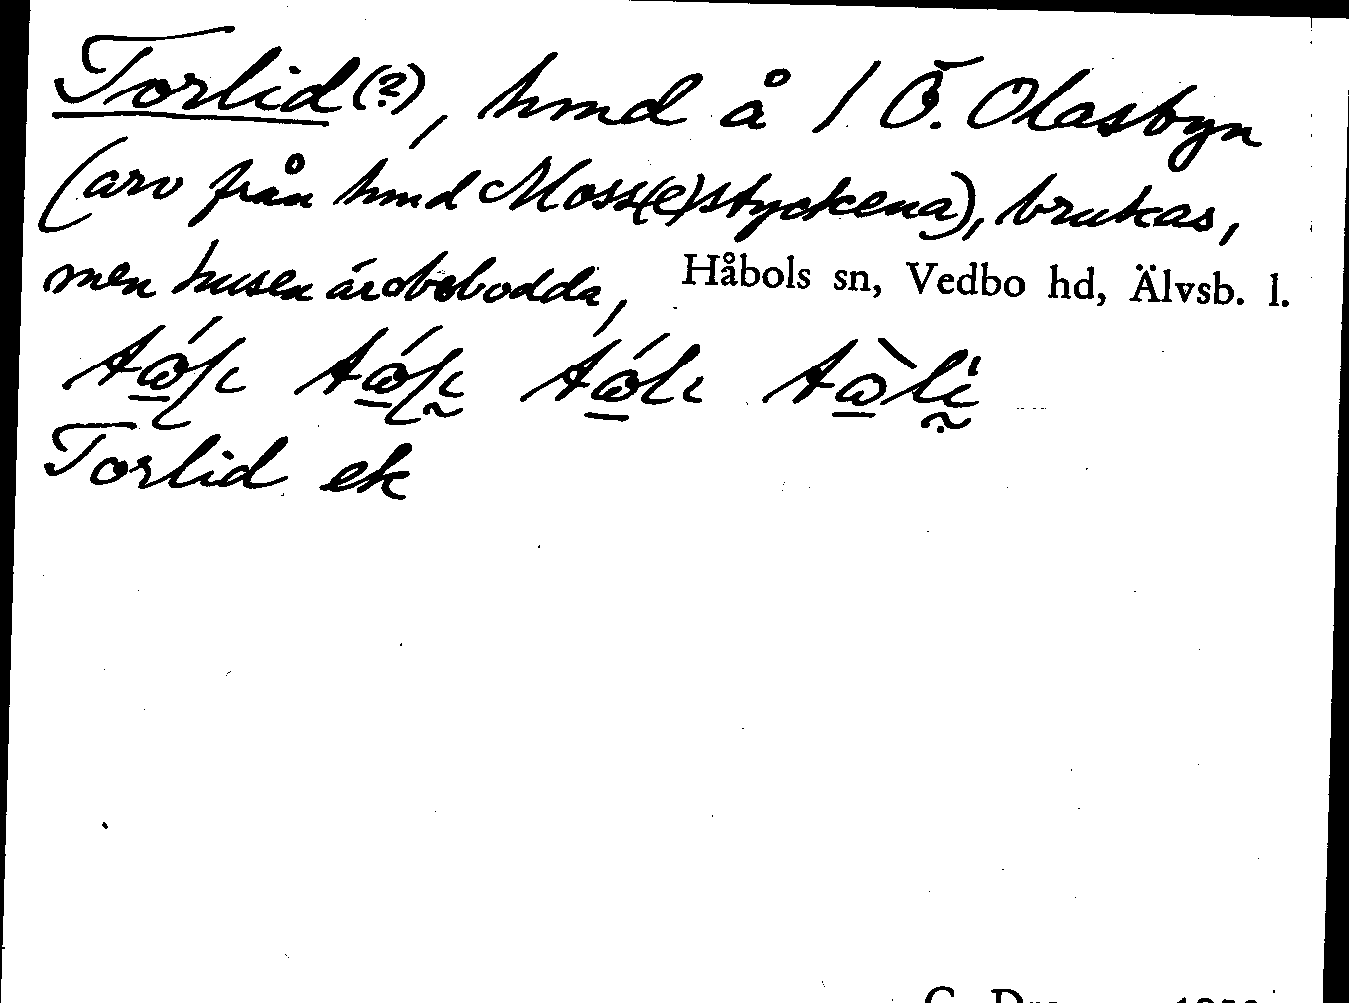 Torlid(?), hmd å 1 Ö. Olasbyn
(arv från hmd Moss(e)styckena), brukas,
men husen är obebodda,
Håbols sn, Vedbo hd, Älvsb. l.
Torlid ek